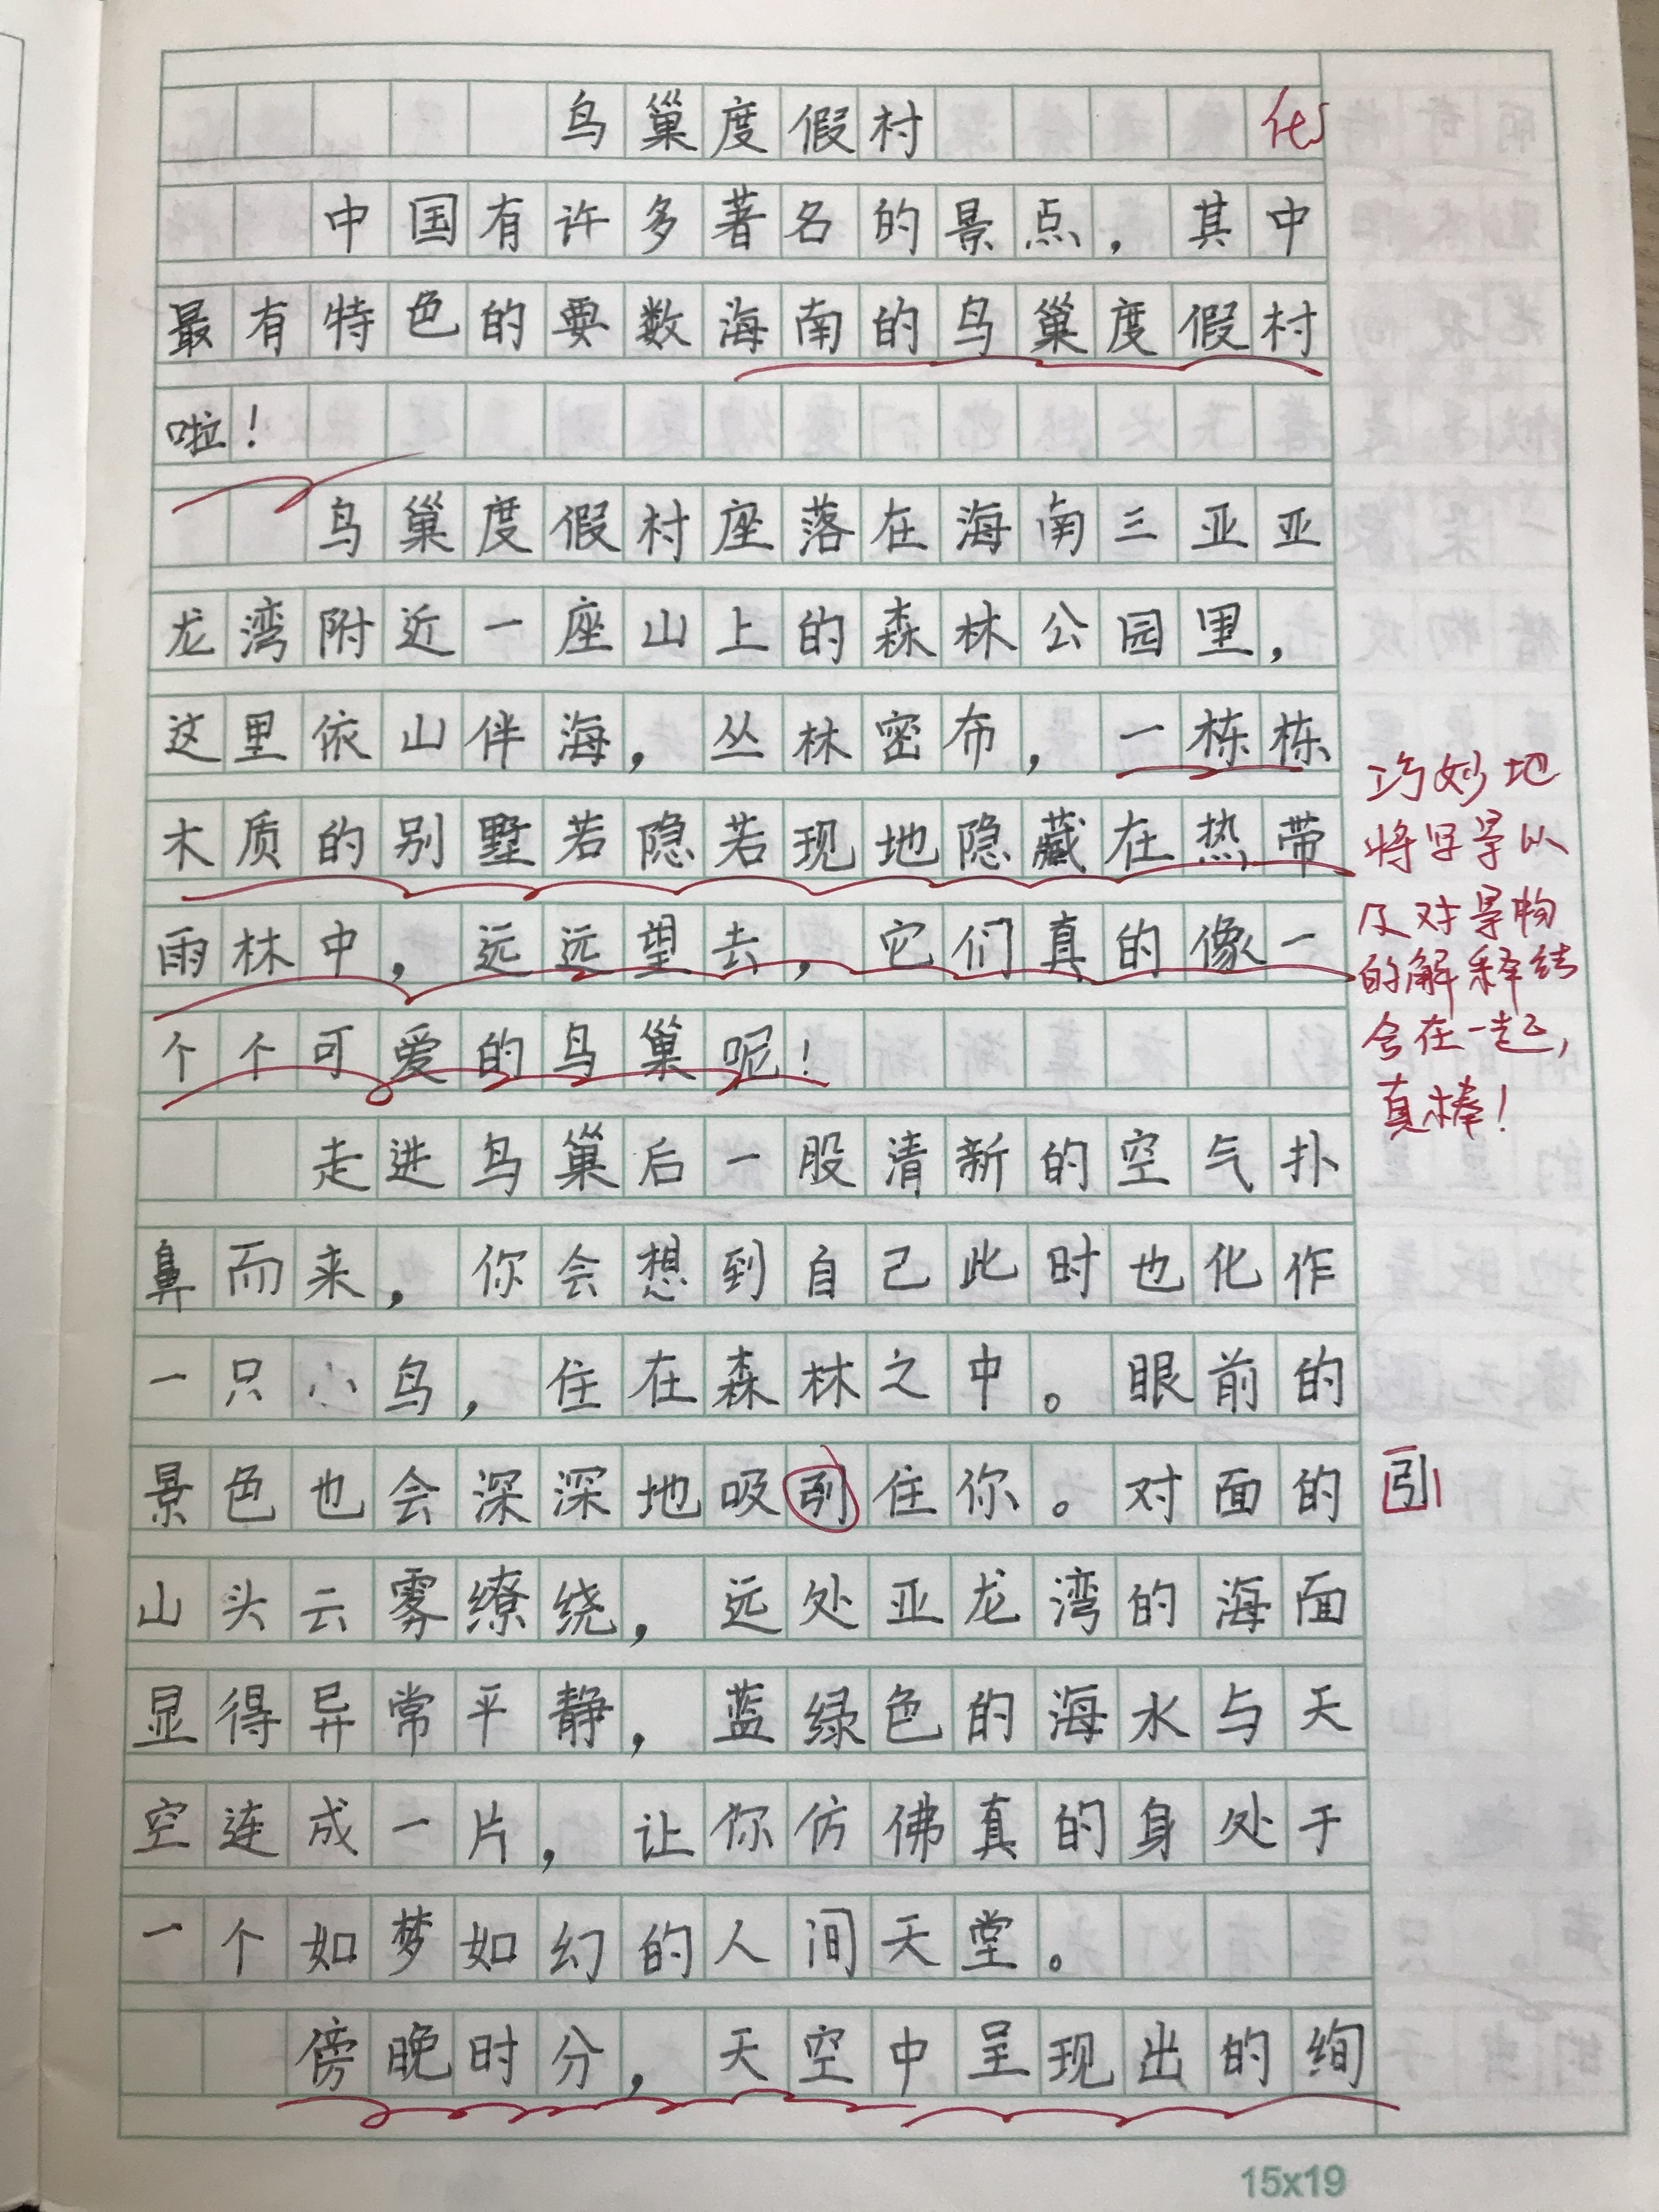 鸟巢度假村
中国有许多著名的景点，其中
最有特色的要数海南的鸟巢度假村
啦！
鸟巢度假村座落在海南三亚亚
龙湾附近一座山上的森林公园里，
这里依山伴海，丛林密布，一栋栋
木质的别墅若隐若现地隐藏在热带
雨林中，远远望去，它们真的像一
个个可爱的鸟巢呢！
巧妙地
将写景以
及对景物
的解释结
合在一起，
真棒！
走进鸟巢后一股清新的空气扑
鼻而来，你会想到自己此时也化作
一只小鸟，住在森林之中。眼前的
景色也会深深地吸引住你。对面的
引
山头云雾缭绕，远处亚龙湾的海面
显得异常平静，蓝绿色的海水与天
空连成一片，让你仿佛真的身处于
一个如梦如幻的人间天堂。
傍晚时分，天空中呈现出的绚
15x19